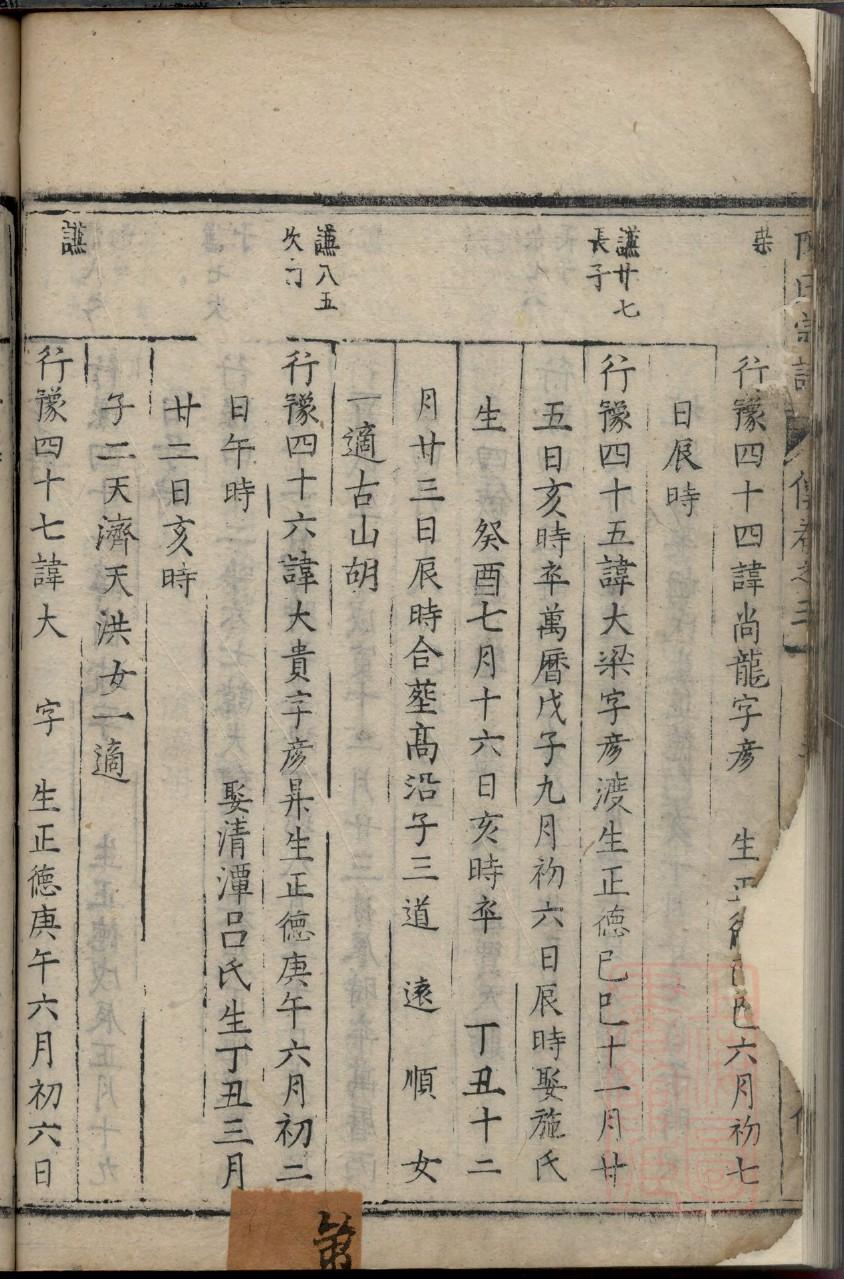 氏宗譜 傳卷之三
行豫四十四諱尚龍字彦 生正 巳六月初七
日辰時
謙廿七
長子
行豫四十五諱大梁字彦渡生正德己巳十一月廿
五日亥時卒萬曆戊子九月初六日辰時娶施氏
生 癸酉七月十六日亥時卒 丁丑十二
月廿三日辰時合塟高沿子三道 遠 順 女
一適古山胡
謙八五
次子
行豫四十六諱大貴字彦昇生正德庚午六月初二
日午時 娶清潭吕氏生丁丑三月
廿二日亥時
子二天濟天洪女一適
謙
行豫四十七諱大 字 生正德庚午六月初六日